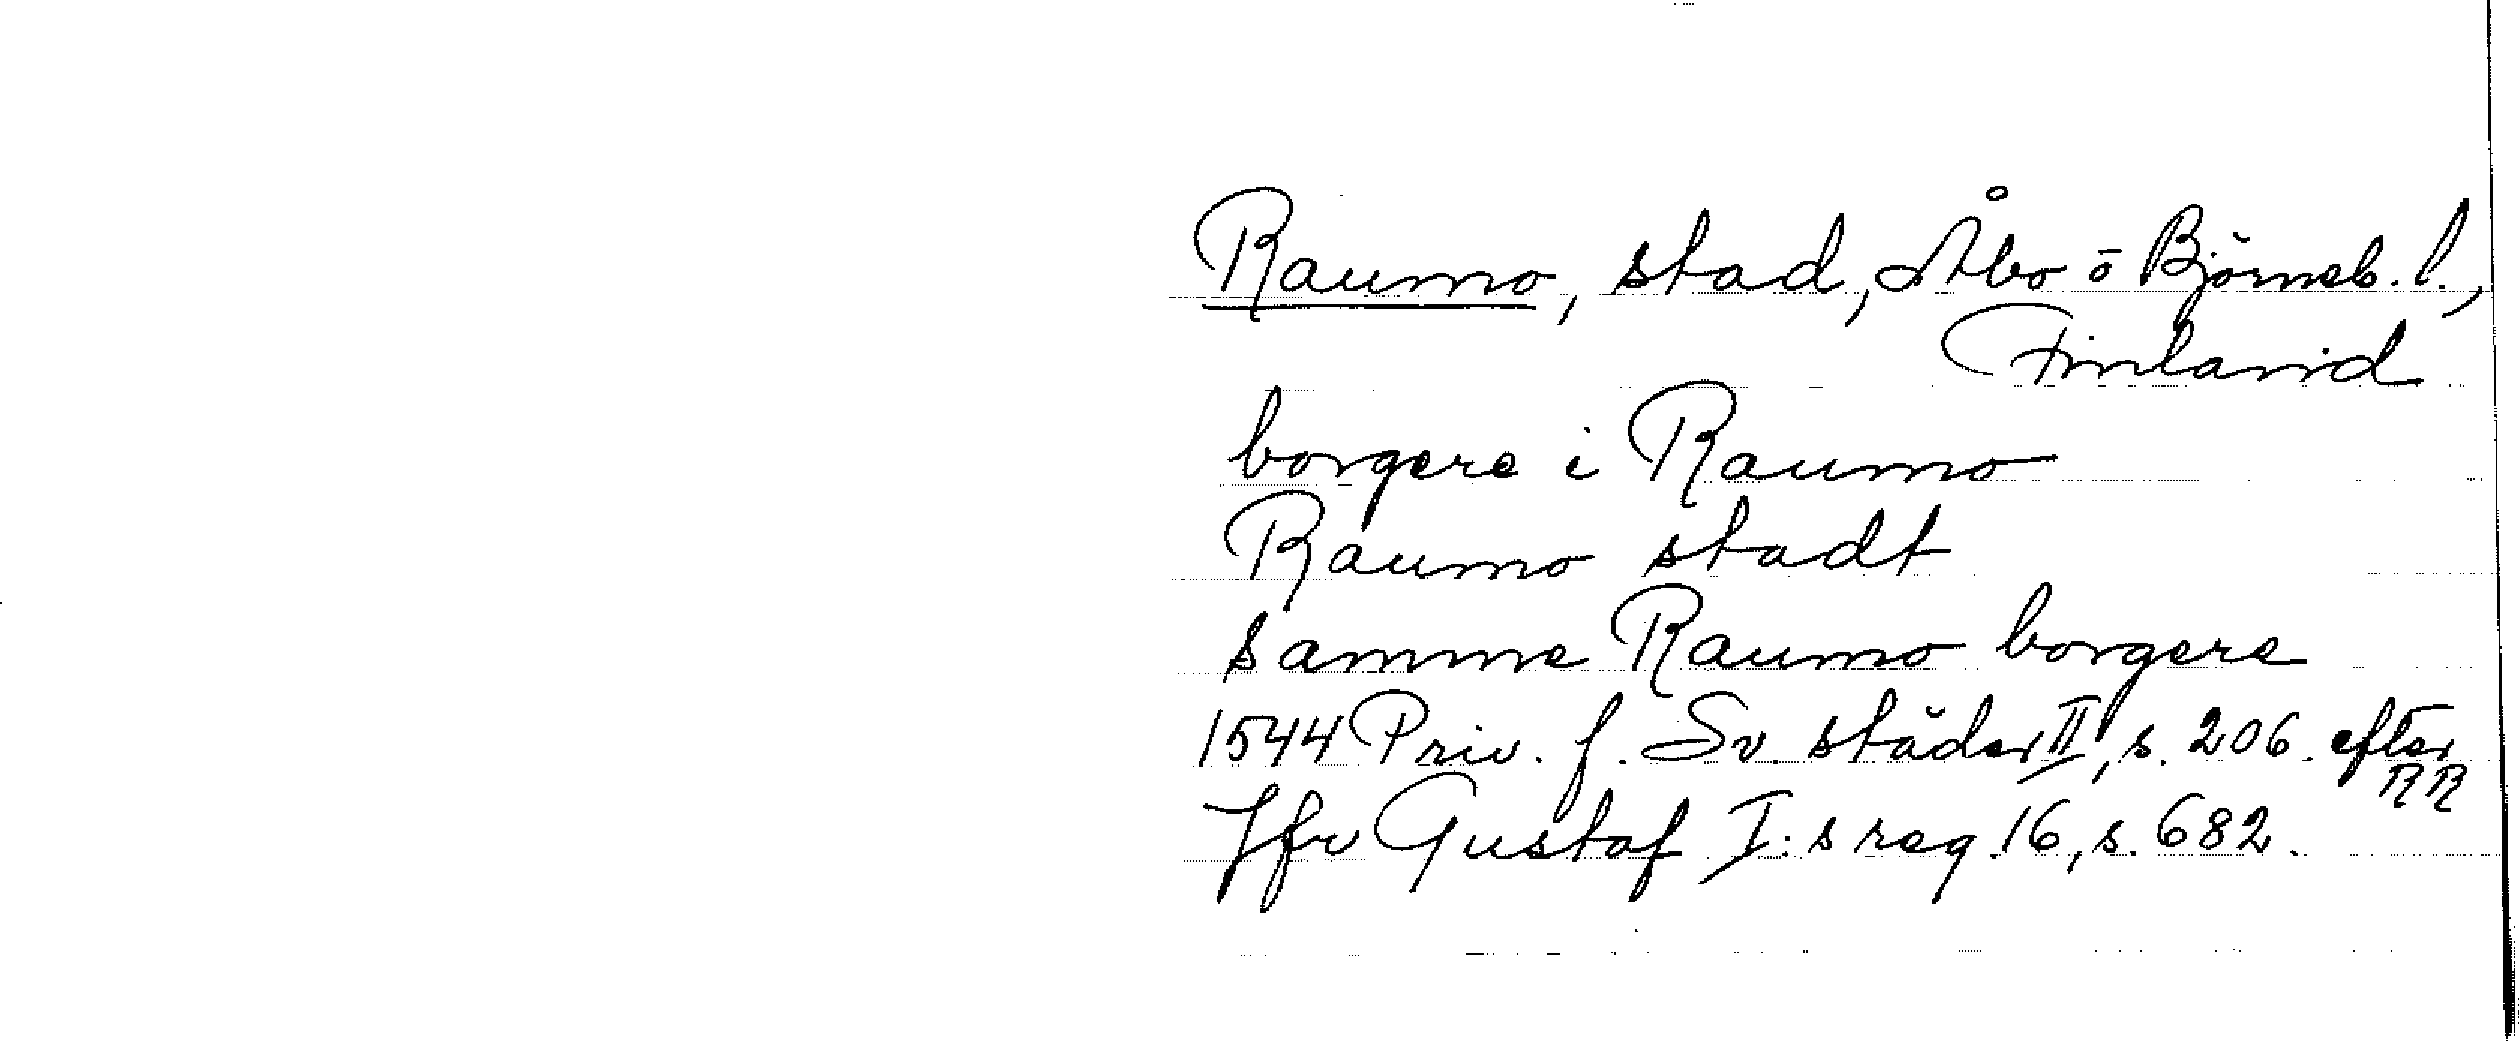 Raumo, stad, Åbo o Björneb. l.,
Finland
borgere i Raumo
Raumo stadt
samme Raumo borgere
1544 Priv. f. Sv. städer II, s. 206. efter
RR
Jfr Gustaf I:s reg. 16, s. 682.